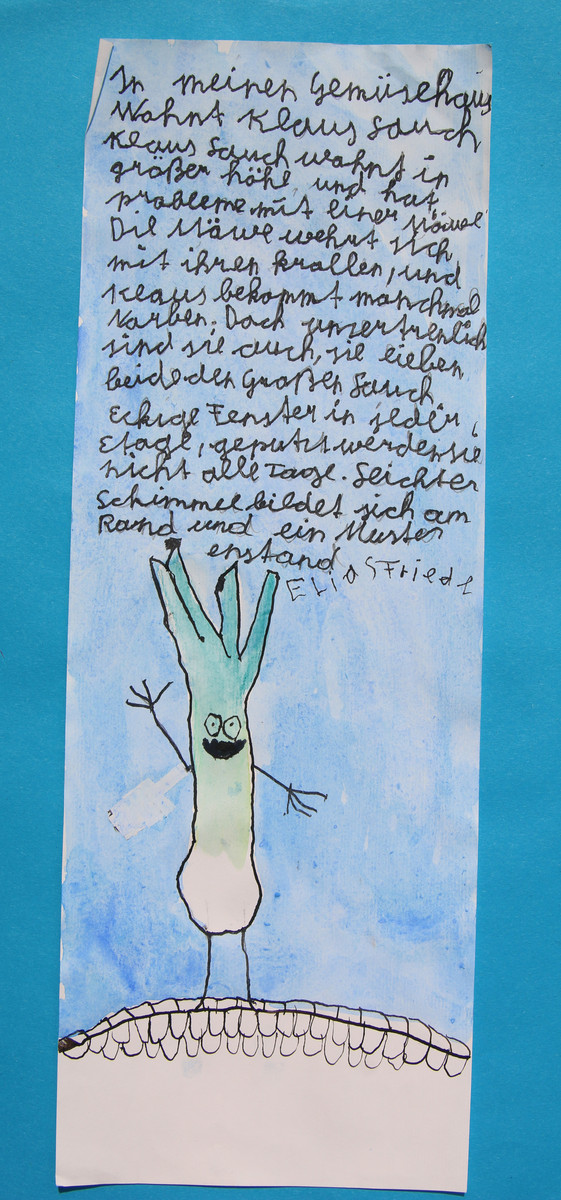 In meinen Gemüsehaus
Wohnt Klaus Lauch
Klaus Lauch wohnt in
größer höhe und hat
probleme mit einer Möwe
Die Möwe wehrt sich
mit ihren krallen, und
Klaus bekommt manchmal
Narben. Doch unzertrenlich
sind sie auch, sie lieben
beide den Großen Lauch
Eckige Fenster in jeder
Etage, geputzt werden sie
nicht alle Tage. Leichter
Schimmel bildet sich am
Rand und ein Muster
enstand
Elias Friede